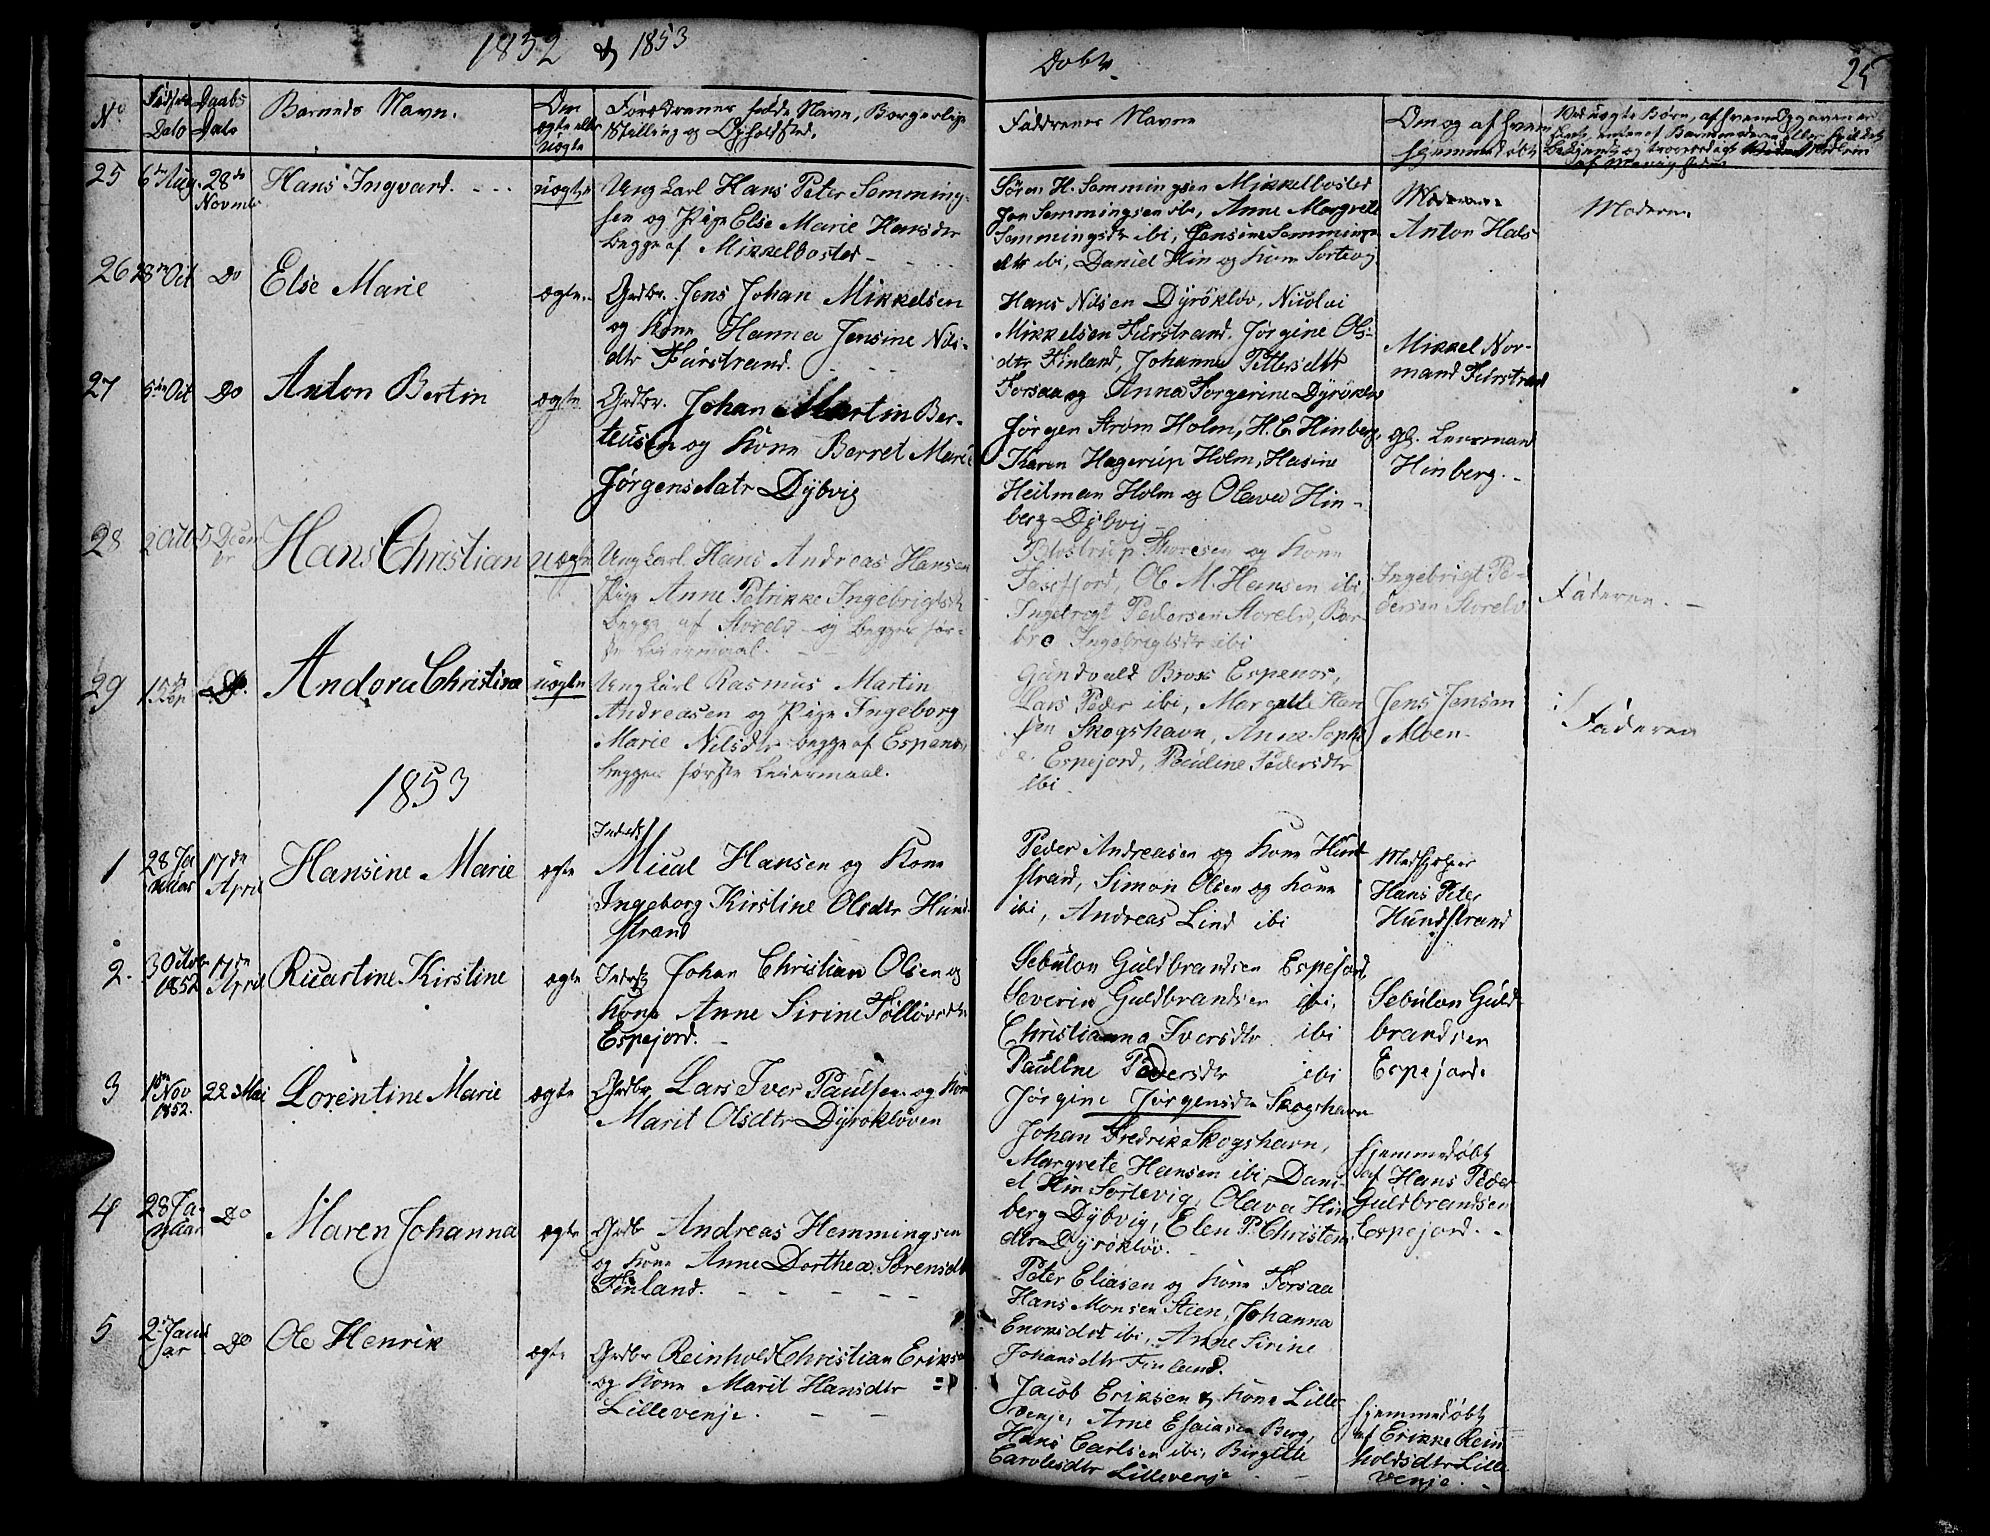 1852 & 1853
Døbte
25
No
Fødsels Dato
Daabs Dato
Barnets Navn.
Om ægte eller uægte
Forældrenes fulde Navn, Borgerlige
Stilling og Opholdsted.
Faddrenes Navne
Om og af hvem
hjemmedøbt
25 6te Aug. 28de Novmbr Hans Ingvard. uægte
Ung Karl Hans Peter Hemming-
sen og Pige Else Marie Hansdtr
begge af Mikkelbostad
Sören H. Hemmingsen Mikkelbosted
Jon Hemmingsen ibi, Anne Margrete
Hemmingsdtr ibi, Jensine Hemmings
dtr ibi, Daniel Hin og Kone Sortevig
Moderen.
Anton Hals
Moderen.
26 28de Oct Do Else Marie ægte.
Grdbr. Jens Johan Mikkelsen
og Kone Hanna Jensine Nils-
dtr Furstrand.
Hans Nilsen Dyröklöv, Nicolai
Mikkelsen Furstrand, Jörgine Ols-
dtr Finland, Johanna Pettersdtr
Forsaa og Anna Torgerine Dyröklöv
Mikkel Nor-
mand Furstrand
27 5te Oct Do Anton Bertin ægte
Grdbr. Johan Martin Ber-
teusen og Kone Berret Marie
Jørgensdatr Dybvig
Jörgen Ström Holm, H. C. Hinberg,
Karen Hagerup Holm, Hasine
Heitman Holm og Olava Hin-
berg Dybvig
gl. Lensmand
Hinberg.
28 2 Oct 5 Decem br Hans Christian uægte
Ung Karl. Hans Andreas Hansen
Pige Anne Petrikke Ingebrigtsdtr
begge af Storelv og begges før-
ste Leiermaal.
Thoresen og Kone
Ole M. Hansen ibi
Ingebrigt Pedersen Storelv, Bar-
bro Ingebrigtsdtr ibi
Ingebrigt Pe-
dersen Storelv
Faderen.
29 15de Do. Andora Christine uægte
Ung Karl Rasmus Martin
Andreasen og Pige Ingeborg
Marie Nilsdtr begge af Espenes,
begges første Leiermaal.
Gundvald Brox Espenes,
Lars Peder ibi, Margrette Han
sen Skogshavn, Anne Sophi
e Espejord, Pauline Pedersdtr
ibi
Jens Jensen
Moen
Faderen
1853
1 28 Ja nuar 17de April Hansine Marie ægte
Inderst
Mical Hansen og Kone
Ingeborg Kirstine Olsdtr Hund
strand
Peder Andreasen og Kone Hund
strand, Simon Olsen og Kone
ibi, Andreas Lind ibi
Medhjelper
Hans Peter
Hundstrand
2. 3 Octobr 1852 17de April Ricartine Kirstine ægte
Inderst Johan Christian Olsen og
Kone Anne Sirine Tølløvsdtr
Espejord.
Sebulon Guldbrandsen Espejord,
Severin Guldbrandsen ibi,
Christianna Iversdtr ibi
Pauline Pedersdtr ibi
Sebulon Guld
brandsen
Espejord.
3 1ste Nov 1852. 22 Mai Lorentine Marie ægte
Grdbr Lars Iver Paulsen og Kone
Marit Olsdtr Dyröklöven
Jörgine Jörgensdtr Skogshavn
Johan Fredrik Skogshavn,
Margrete Hansen ibi, Dani-
el Hin Sortevig, Olava Hin
berg Dybvig, Elen P. Christens
dtr Dyröklöv.
hjemmedøbt
af Hans Peder
Guldbrandsen
Espejord.
4 28 Ja- nuar Do Maren Johanna ægte
Grdbr Andreas Hemmingsen
og Kone Anne Dorthea Sørensdtr
Finland.
Peter Eliasen og Kone Forsaa
Hans Monsen Steen, Johanna
Enoksdtr ibi, Anne Sirine
Johansdtr Finland.
5 2de Janu ar Do Ole Henrik ægte
Grdbr Reinhold Christian Eriksen
og Kone Marit Hansdtr
Lillevenje.
Jacob Eriksen & Kone Lille
venje, Arne Esaiasen Berg,
Hans Carlsen ibi, Birgitte
Carolesdtr Lillevenje
hjemmedøbt
af Erikke Rein
holdsdtr Lille
venje.